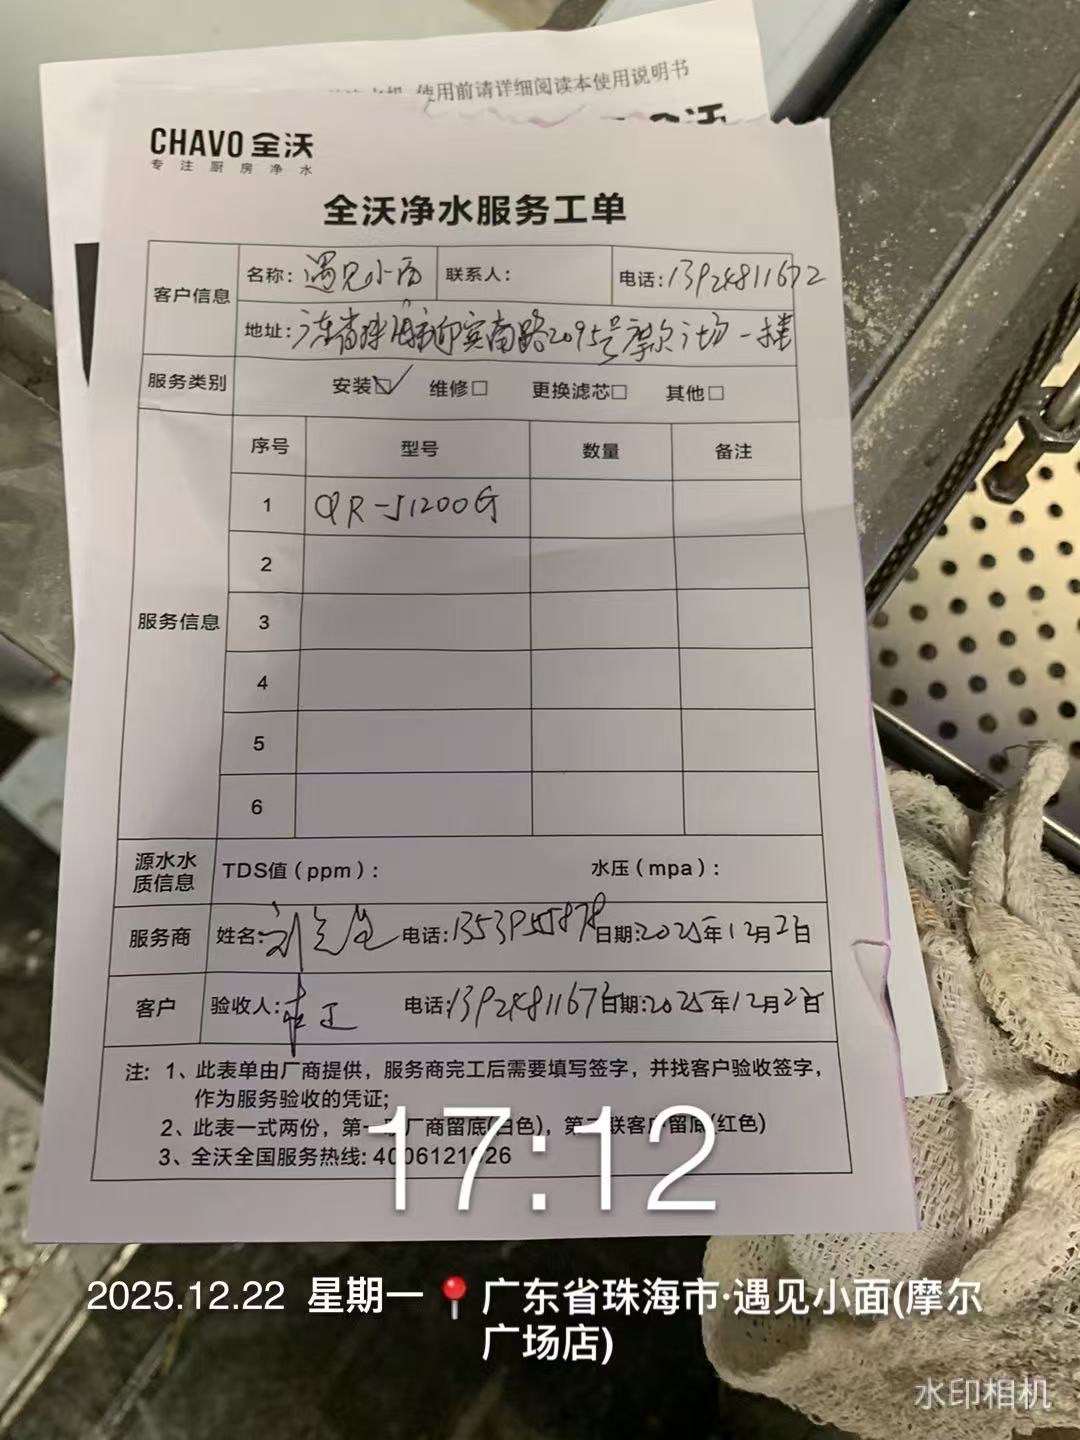 使用前请详细阅读本使用说明书
CHAVO 全沃
专注厨房净水
全沃净水服务工单
客户信息 名称: 遇见小面 联系人: 电话: 13924811672
地址: 广东省珠海市迎宾南路2095号摩尔广场一楼
服务类别 安装☑ 维修□ 更换滤芯□ 其他□
服务信息 序号 型号 数量 备注
1 QR-J1200G
2
3
4
5
6
源水水质信息 TDS值(ppm): 水压(mpa):
服务商 姓名: 刘先生 电话: 13539555878 日期: 2025年12月22日
客户 验收人: 电话: 13924811672 日期: 2025年12月22日
注: 1、此表单由厂商提供，服务商完工后需要填写签字，并找客户验收签字，
作为服务验收的凭证;
2、此表一式两份，第一联厂商留底(白色)，第二联客户留底(红色)
3、全沃全国服务热线:
17:12
2025.12.22 星期一 广东省珠海市·遇见小面(摩尔
广场店)
水印相机